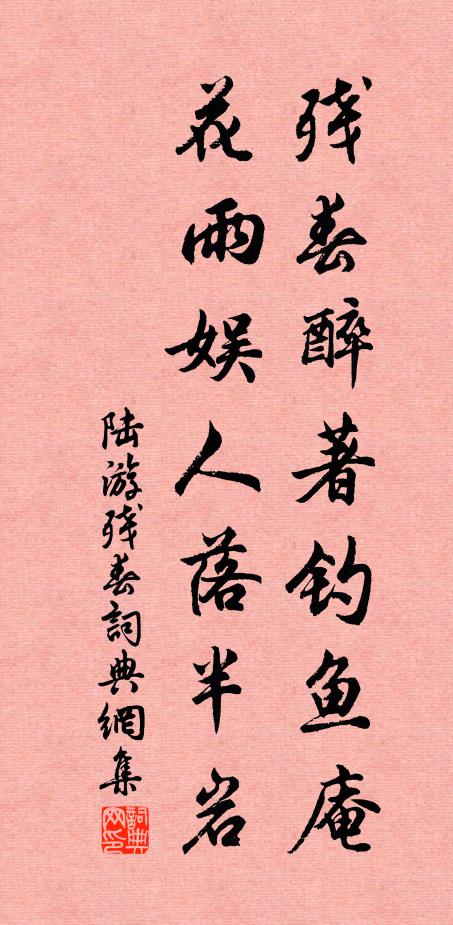 残春醉著钓鱼庵
花雨娱人落半岩
陆游残春词典网集
词典网印